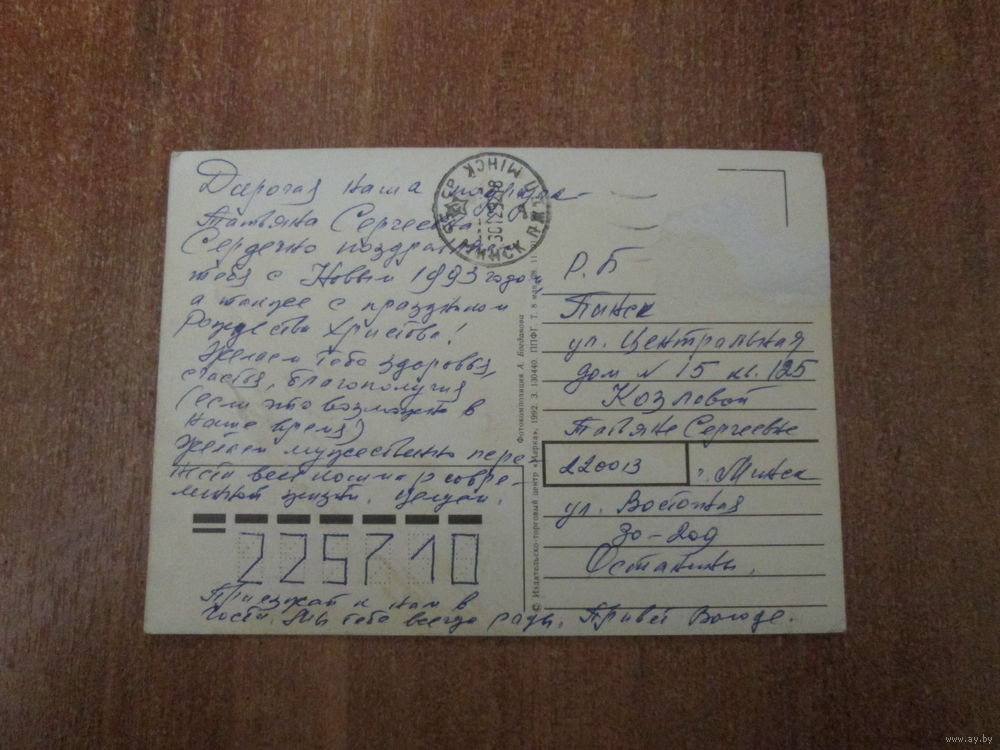 Дорогая наша подруга
Татьяна Сергеевна
Сердечно поздравляем
тебя с Новым 1993 годом,
а также с праздником
Рождества Христова!
Желаем тебе здоровья,
счастья, благополучия
(если это возможно в
наше время)
Желаем мужественно пере-
жить все кошмар совре-
менной жизни. Целуем.
225710
Приезжай к нам в
гости. Мы тебе всегда рады. Привет Володе.
МІНСК
МИНСК
301292
Р.Б
Пинск
ул. Центральная
дом № 15 кв. 125
Козловой
Татьяне Сергеевне
220013 г. Минск
ул. Восточная
30-202
Останины.
© Издательско-торговый центр «Марка», 1992. З. 130440. ППФГ. Т. 8 млн.
Фотокомпозиция А. Богданова
www.ay.by